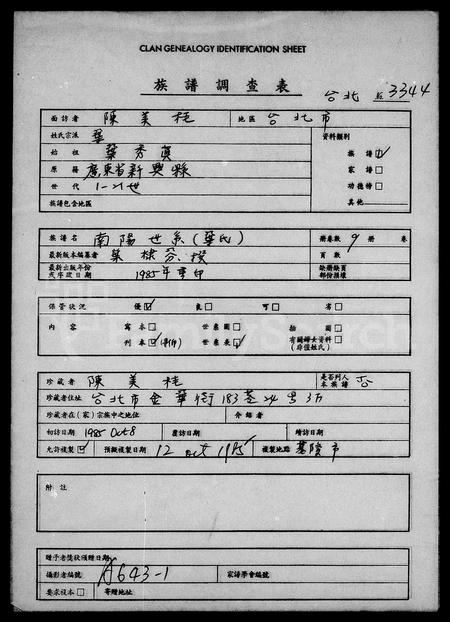 CLAN GENEALOGY IDENTIFICATION SHEET
族譜調查表
台北 3344
面訪者 陳美桂 地區 台北市
姓氏宗派 葉 資料類別
始祖 葉秀 族譜☑
原籍 廣東省新興縣 家譜□
世代 1-21世 功德榜□
族譜包含地區 其他
族譜名 南陽世系(葉氏) 冊卷數 9 冊 卷
最新版本編纂者 葉 頁數
最新出版年份或序跋日期 1985年 印 缺冊缺頁部份損壞
保管狀況 優☑ 良□ 可□ 壞□
內容 寫本□ 世系圖□ 插圖□
刊本☑ 世系表☑ 有關婦女資料□(非僅姓氏)
珍藏者 陳美桂 是否列入本族譜 否
珍藏者住址 台北市金華街183巷24号3F
珍藏者在(家)宗族中之地位 介紹者
初訪日期 1985 Oct 8 覆訪日期 續訪日期
允許複製☑ 預擬複製日期 12 Oct 1985 複製地點 基隆市
附註
贈予者獎狀頒贈日期
攝影者編號 A643-1 家譜學會編號
要求複本□ 寄贈地址